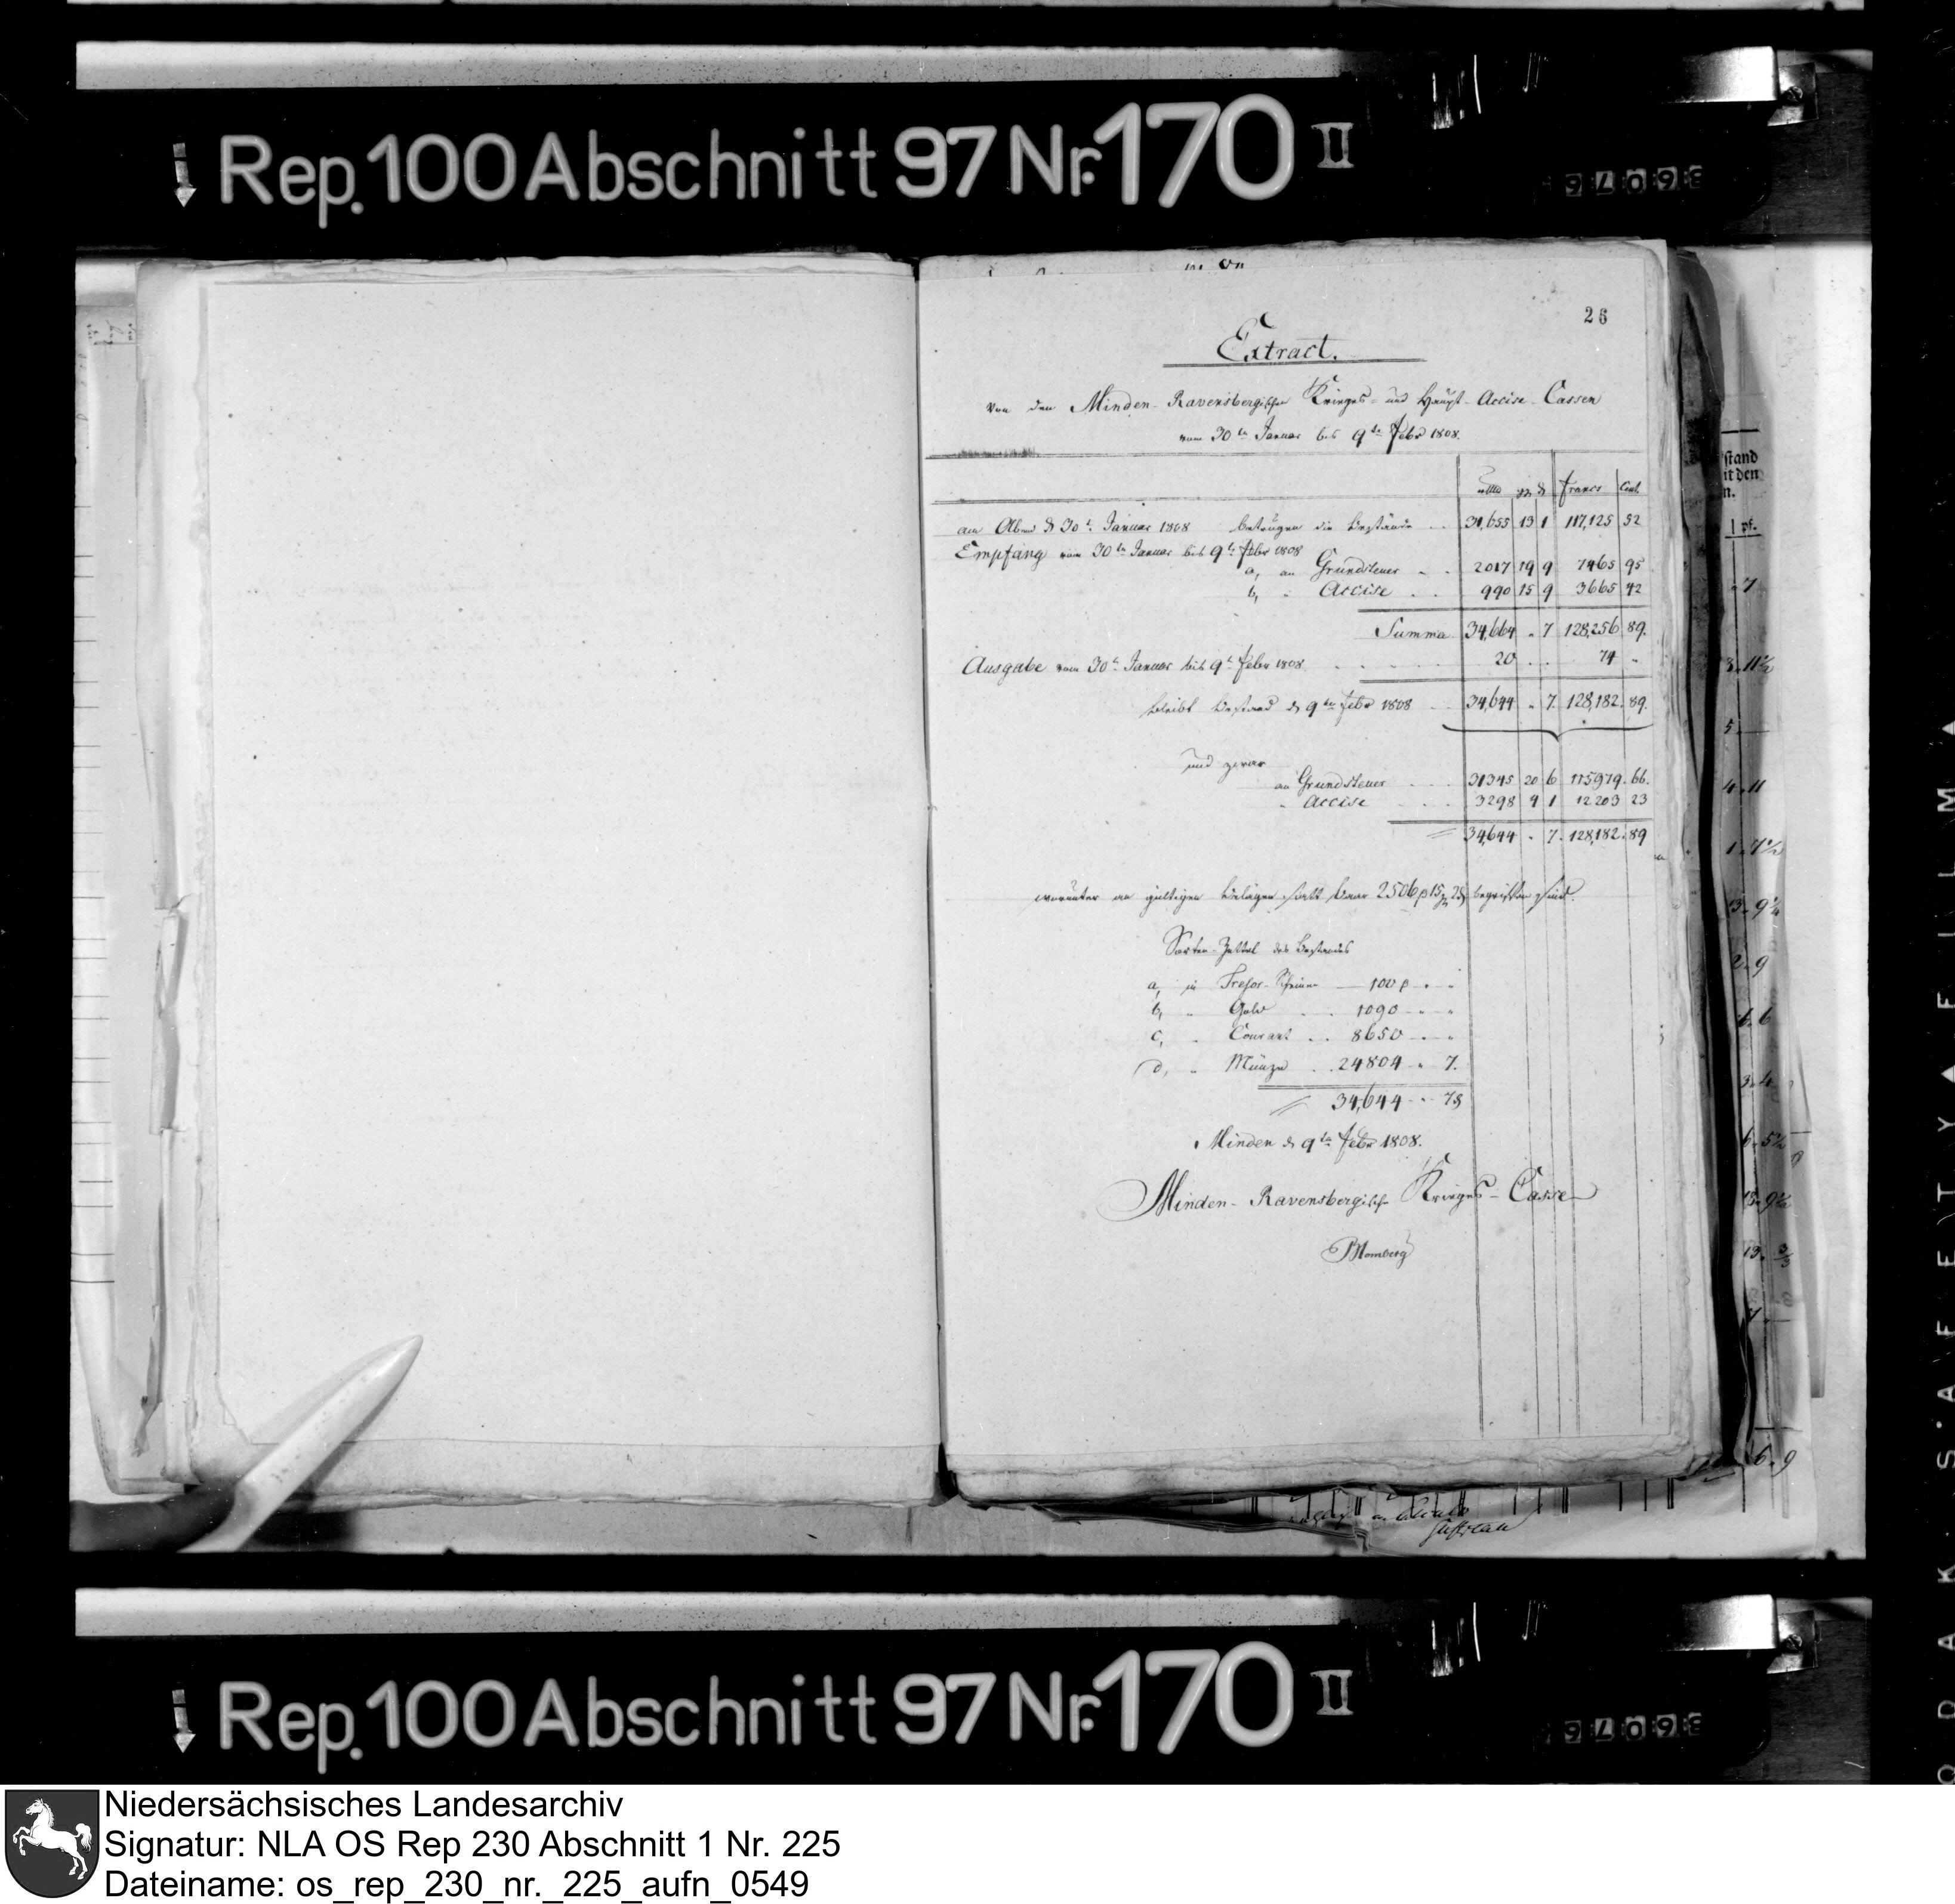 Rep. 100 Abschnitt 97 Nr. 170 II
36076
26
Extract.
Von den Minden-Ravensbergischen Krieges- und Haupt-Accise-Cassen
vom 30ten Januar bis 9ten Febr 1808.
rthlr ggr ₰ Francs Cent
am Abend d 30t. Januar 1808 betrugen die Bestände .. 31,655 13 1 117,125 52
Empfang vom 30ten Januar bis 9ten Febr 1808
a, an Grundsteuer . . 2017 19 9 7465 95
b, " Accise . . . 990 15 9 3665 42
Summa 34,664 " 7 128,256 89.
Ausgabe vom 30t. Januar bis 9t. Febr 1808 . . . . . . 20 . . 74 "
bleibt Bestand d 9ten Febr 1808 .. 34,644 " 7. 128,182. 89.
und zwar
an Grundsteuer . . . 31345 20 6 115979. 66.
" Accise . . . 3298 4 1 12203 23
34,644 " 7. 128,182. 89
worunter an gültigen Belägen statt baar 2506 begriffen sind.
Sorten-Zettel des Bestandes
a, in Tresor-Scheinen — 100 " "
b, " Gold . . 1090 " "
c, " Courant . . 8650 " "
d, " Münze . . 24804 " 7.
34,644 " 7₰
Minden d 9ten Febr 1808.
Minden-Ravensbergische Krieges-Casse
Blomberg
stand
it den
n.
pf.
Rep. 100 Abschnitt 97 Nr. 170 II
36076
Niedersächsisches Landesarchiv
Signatur: NLA OS Rep 230 Abschnitt 1 Nr. 225
Dateiname: os_rep_230_nr._225_aufn_0549